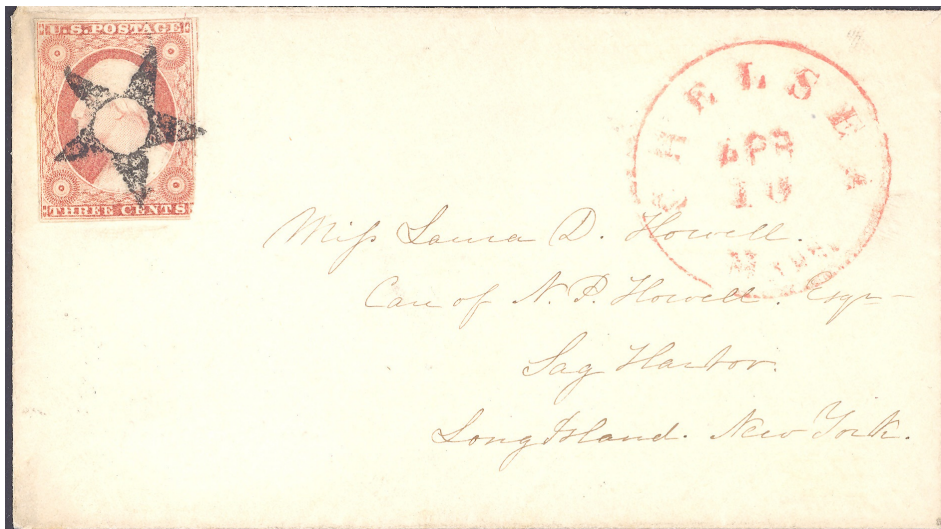 U.S. POSTAGE
THREE CENTS
CHELSEA
APR
10
MASS.
Miss Laura D. Howell.
Care of N. P. Howell. Esqr
Sag Harbor.
Long Island. New York.